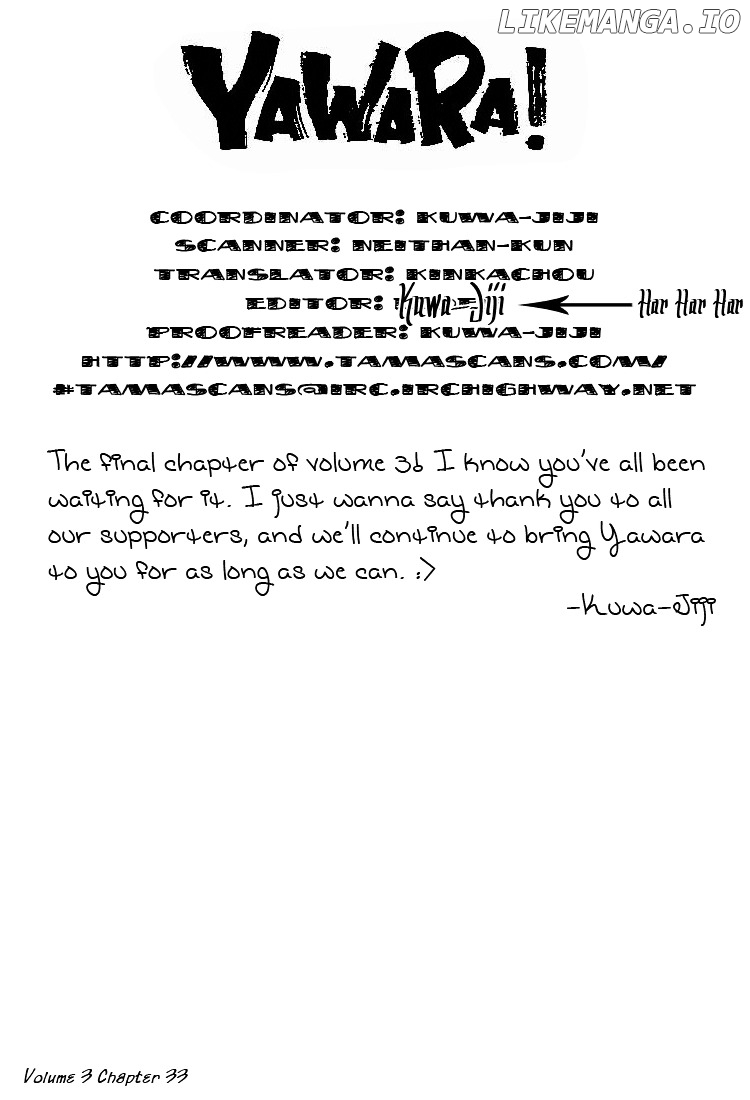 LIKEMANGA.IO
YAWARA!
COORDINATOR: KUWA-JIJI
SCANNER: NEITHAN-KUN
TRANSLATOR: KINKACHOU
EDITOR: Kuwa-Jiji Har Har Har
PROOFREADER: KUWA-JIJI
HTTP://WWW.TAMASCANS.COM/
#TAMASCANS@IRC.IRCHIGHWAY.NET
The final chapter of volume 3! I know you've all been
waiting for it. I just wanna say thank you to all
our supporters, and we'll continue to bring Yawara
to you for as long as we can. :>
-Kuwa-Jiji
Volume 3 Chapter 33